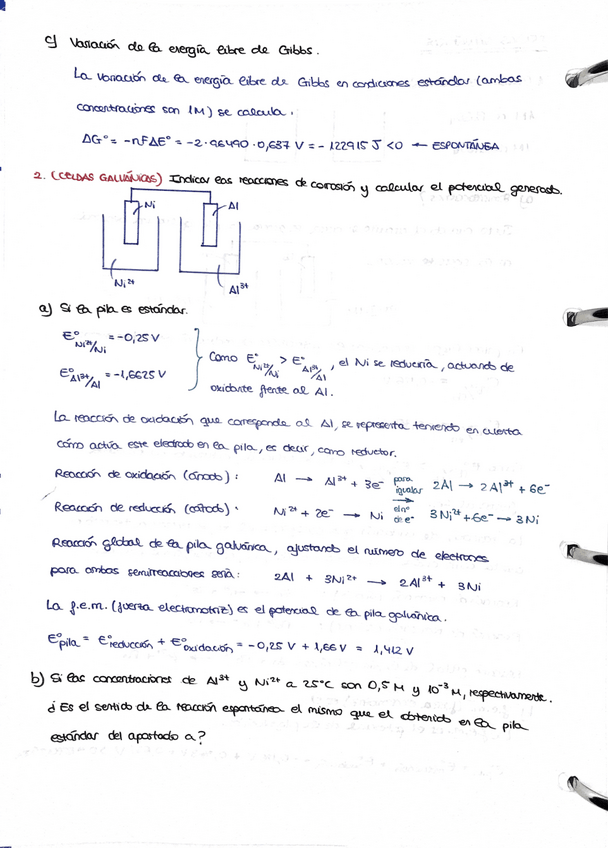 c) Variación de la energía libre de Gibbs.
La variación de la energía libre de Gibbs en condiciones estándar (ambas
concentraciones son 1M) se calcula.
ΔG° = -nFΔE° = -2·96490·0,637 V = -122915 J <0 ← ESPONTÁNEA
2. (CELDAS GALVÁNICAS) Indicar las reacciones de corrosión y calcular el potencial generado.
Ni Al
Ni²⁺ Al³⁺
a) Si la pila es estándar.
E°Ni²⁺/Ni = -0,25 V
E°Al³⁺/Al = -1,6625 V
Como E°Ni²⁺/Ni > E°Al³⁺/Al, el Ni se reduciría, actuando de
oxidante frente al Al.
La reacción de oxidación que corresponde al Al, se representa teniendo en cuenta
cómo actúa este electrodo en la pila, es decir, como reductor.
Reacción de oxidación (ánodo): Al → Al³⁺ + 3e⁻ para igualar 2Al → 2Al³⁺ + 6e⁻
Reacción de reducción (cátodo): Ni²⁺ + 2e⁻ → Ni el nº de e⁻ 3Ni²⁺ + 6e⁻ → 3Ni
Reacción global de la pila galvánica, ajustando el número de electrones
para ambas semirreacciones sería: 2Al + 3Ni²⁺ → 2Al³⁺ + 3Ni
La f.e.m. (fuerza electromotriz) es el potencial de la pila galvánica.
E°pila = E°reducción + E°oxidación = -0,25 V + 1,66 V = 1,412 V
b) Si las concentraciones de Al³⁺ y Ni²⁺ a 25°C son 0,5 M y 10⁻³ M, respectivamente.
¿Es el sentido de la reacción espontánea el mismo que el obtenido en la pila
estándar del apartado a?